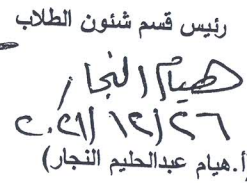 رئيس قسم شئون الطلاب
هيام النجار
٢٠٢١/١٢/٢٦
أ.هيام عبدالحليم النجار)